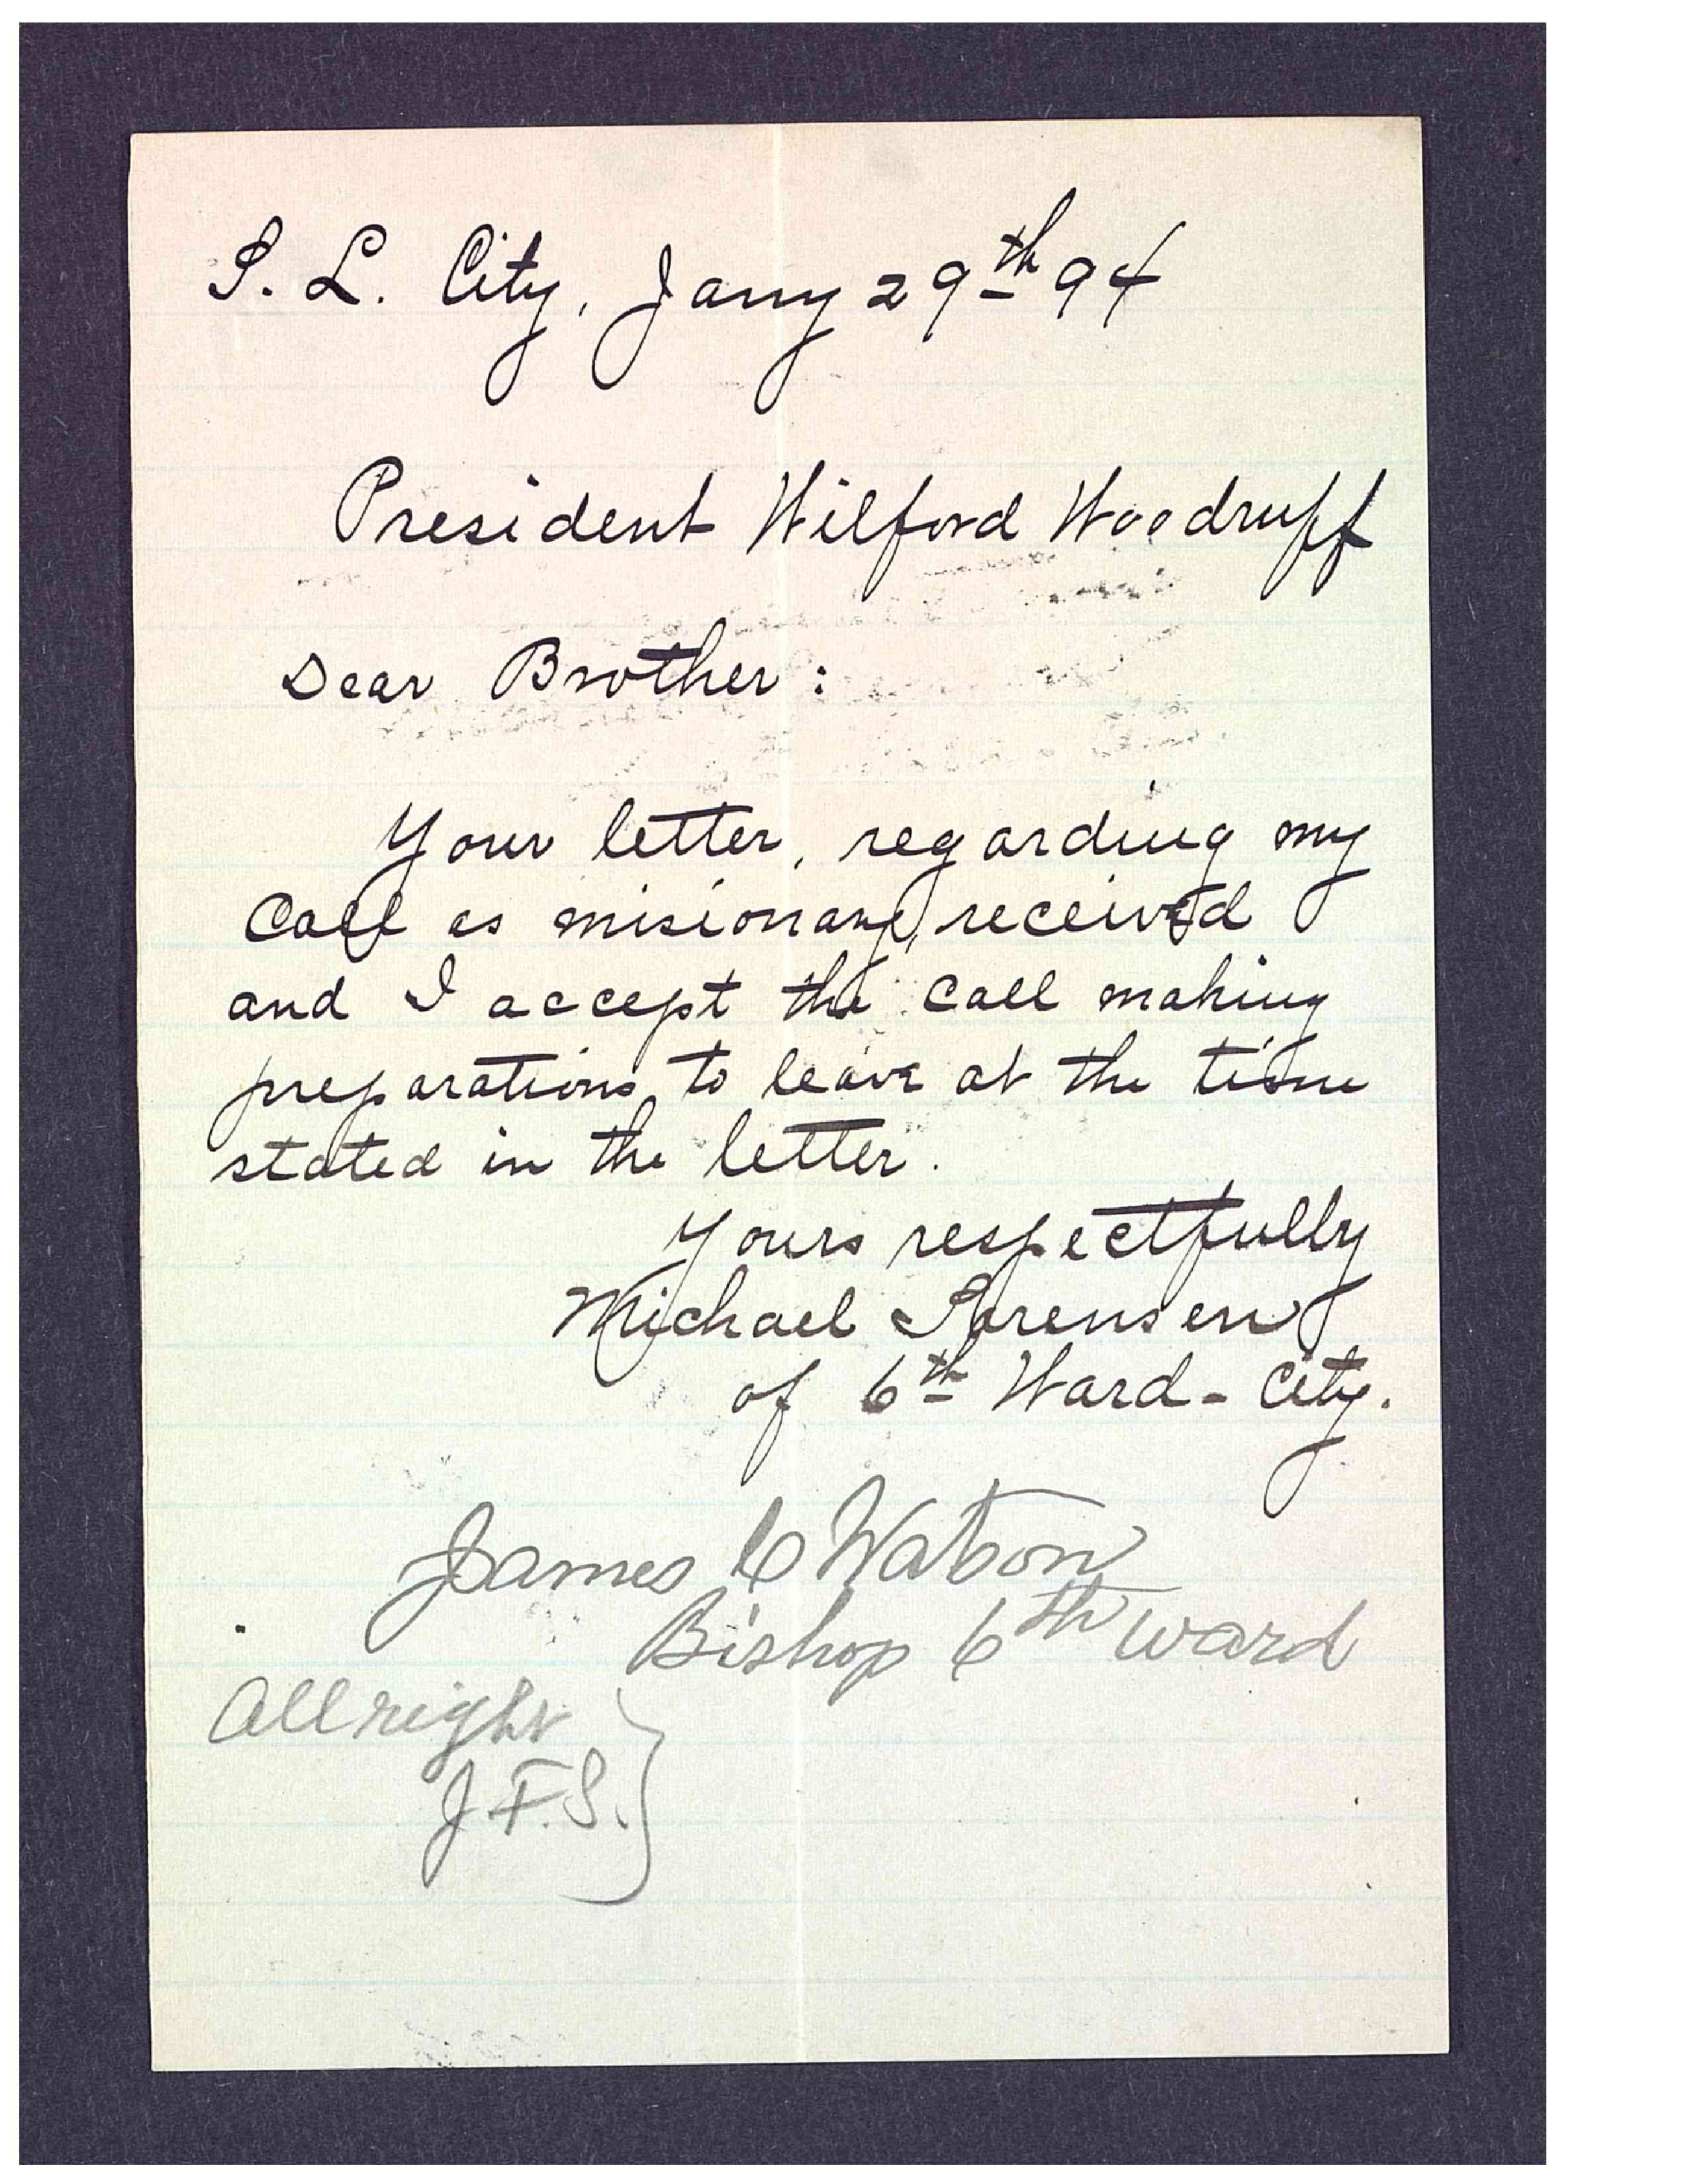 S. L. City, Jany 29th 94
President Wilford Woodruff
Dear Brother:
Your letter, regarding my
Call as misionary, received
and I accept the call making
preparations to leave at the time
stated in the letter.
Yours respectfully
Michael Sorensen
of 6th Ward - City.
James C Watson
Bishop 6th Ward
All right
J. F. S.